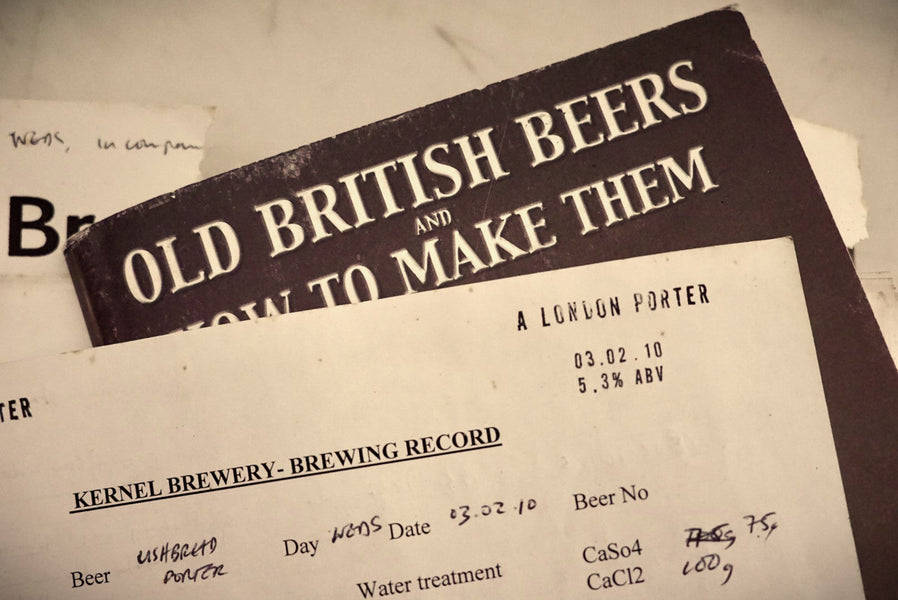 WEDS, in
Br
OLD BRITISH BEERS
AND
HOW TO MAKE THEM
A LONDON PORTER
03.02.10
5.3% ABV
TER
KERNEL BREWERY- BREWING RECORD
Beer PORTER
Day WEDS Date 03.02.10 Beer No
Water treatment
CaSo4 75g
CaCl2 100g